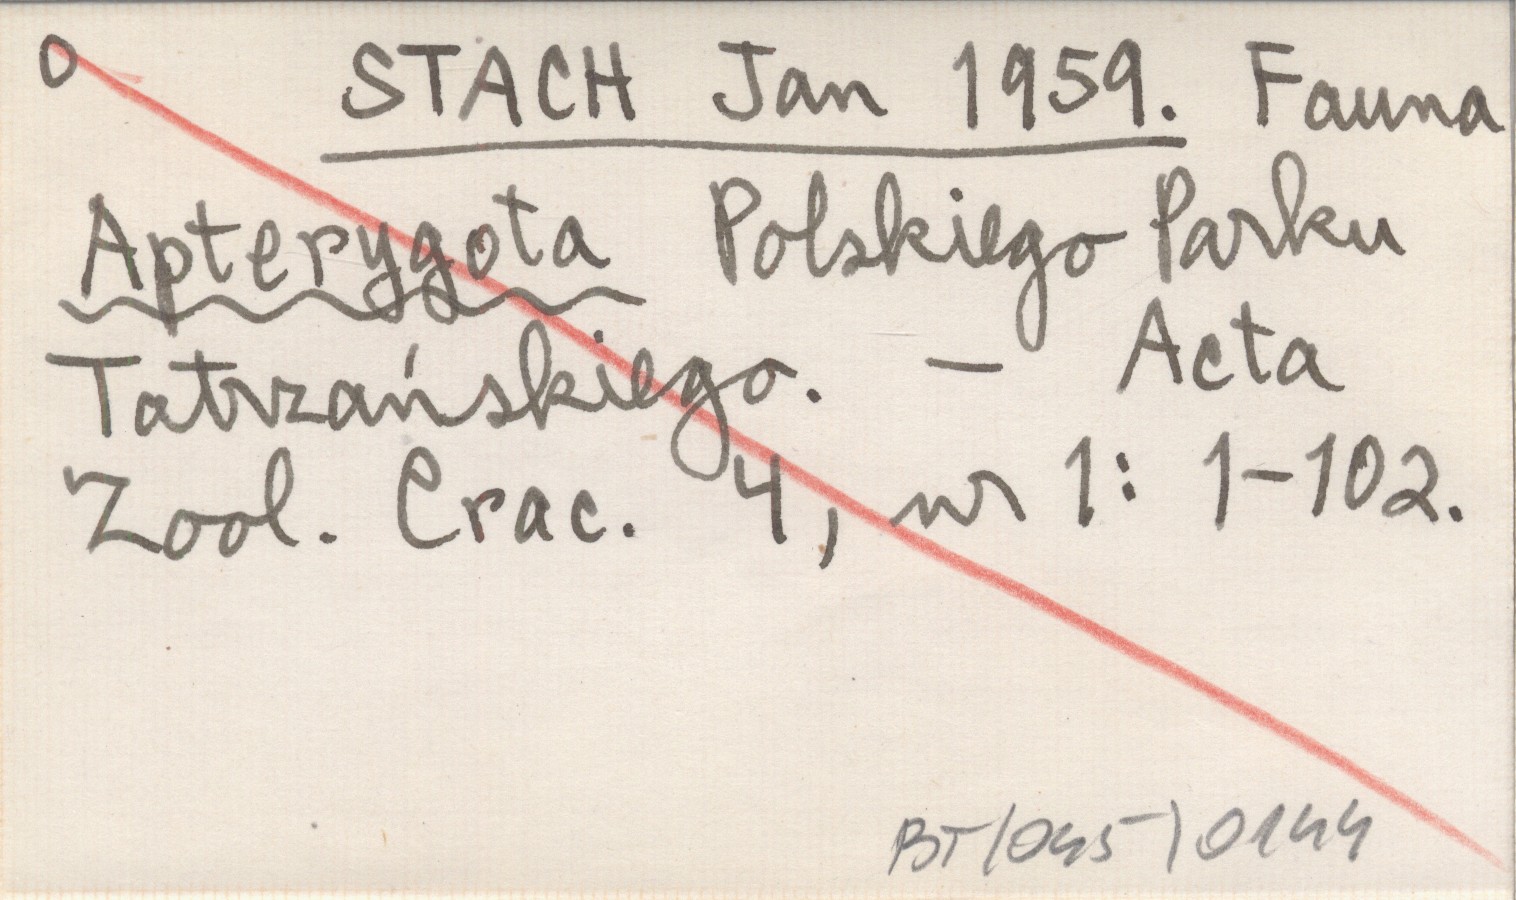 O STACH Jan 1959. Fauna
Apterygota Polskiego Parku
Tatrzańskiego. – Acta
Zool. Crac. 4, nr 1: 1–102.
BT/045/0144